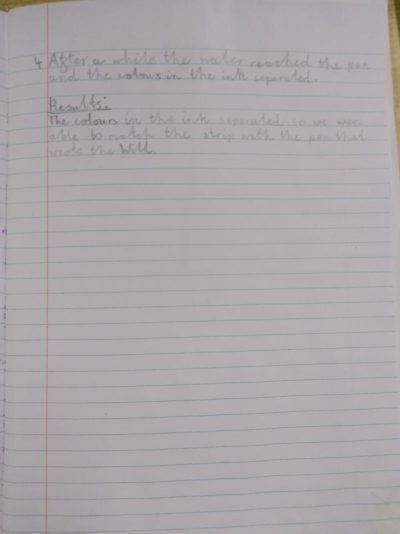 4 After a while the water reached the pen
and the colours in the ink separated.
Results:
The colours in the ink separated so we were
able to match the strip with the pen that
wrote the Will.